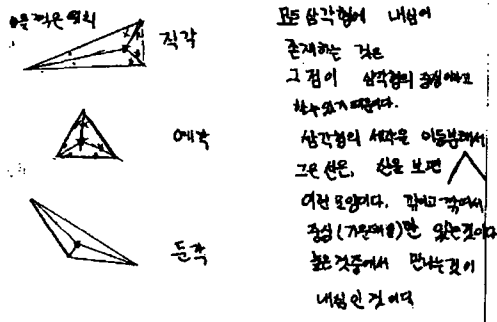 직각
예각
둔각
모든 삼각형에 내심이
존재하는 것은
그 점이 삼각형의 중점이라고
할수있기 때문이다.
삼각형의 세각을 이등분해서
그은 선은, 선을 보면
이런 모양이다.
중심(가운데)만 있는것이다
만나는것이
내심인 것이다